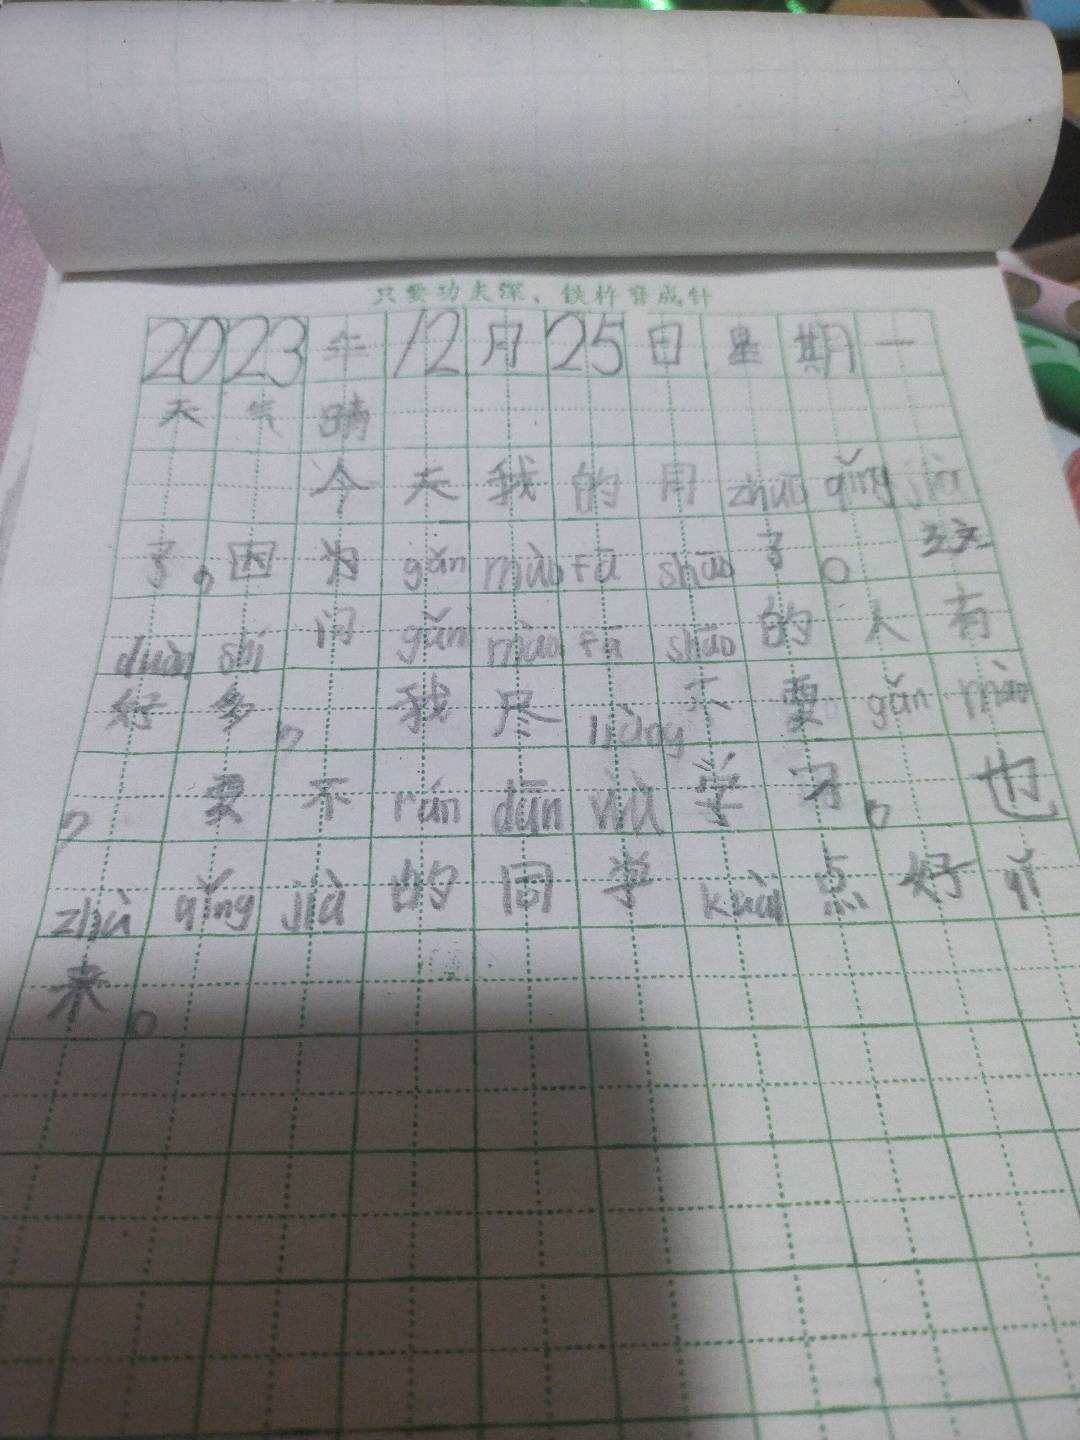 只要功夫深、铁杵磨成针
2023年12月25日星期一
天气晴
今天我的用zhuō qǐng jià
了,因为gǎn mào fā shāo了。这
duàn shí 问gǎn mào fā shāo的人有
好多,我尽liàng不要gǎn mào
,要不rán dān wù学习。也
zhù qǐng jià的同学kuài点好qǐ
来。